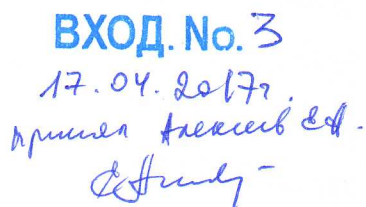 ВХОД. No. 3
17.04.2017г.
принял Алексеев Е.А.